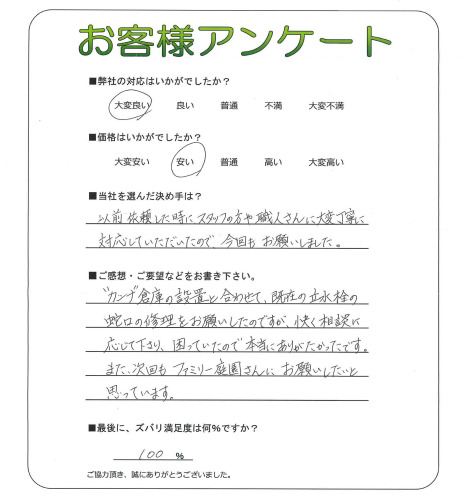 お客様アンケート
■弊社の対応はいかがでしたか？
大変良い 良い 普通 不満 大変不満
■価格はいかがでしたか？
大変安い 安い 普通 高い 大変高い
■当社を選んだ決め手は？
以前依頼した時にスタッフの方や職人さんに大変丁寧に
対応していただいたので、今回もお願いしました。
■ご感想・ご要望などをお書き下さい。
ガレージ倉庫の設置と合わせて、既存の立水栓の
蛇口の修理をお願いしたのですが、快く相談に
応じて下さり、困っていたので本当にありがたかったです。
また、次回もファミリー庭園さんにお願いしたいと
思っています。
■最後に、ズバリ満足度は何％ですか？
100 ％
ご協力頂き、誠にありがとうございました。